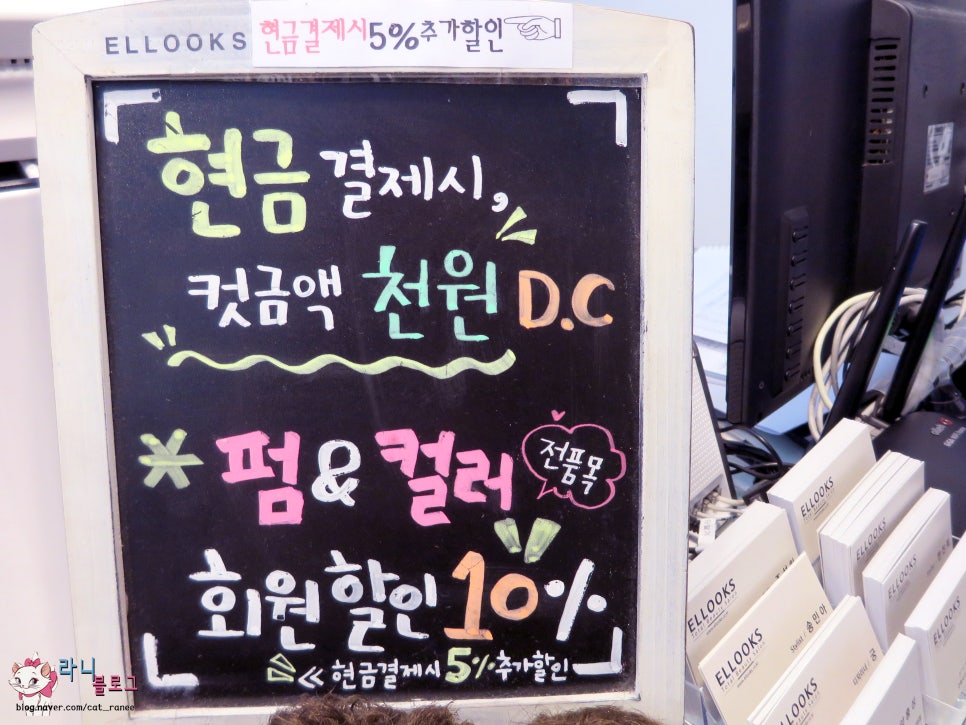 ELLOOKS 현금결제시 5% 추가할인
현금 결제시,
컷금액 천원 D.C
* 펌 & 컬러 전품목
회원 할인 10%
<< 현금결제시 5% 추가할인
ELLOOKS
ELLOOKS
ELLOOKS
ELLOOKS
ELLOOKS
ELLOOKS
Stylist 송민아
ELLOOKS
라니
블로그
blog.naver.com/cat_ranee